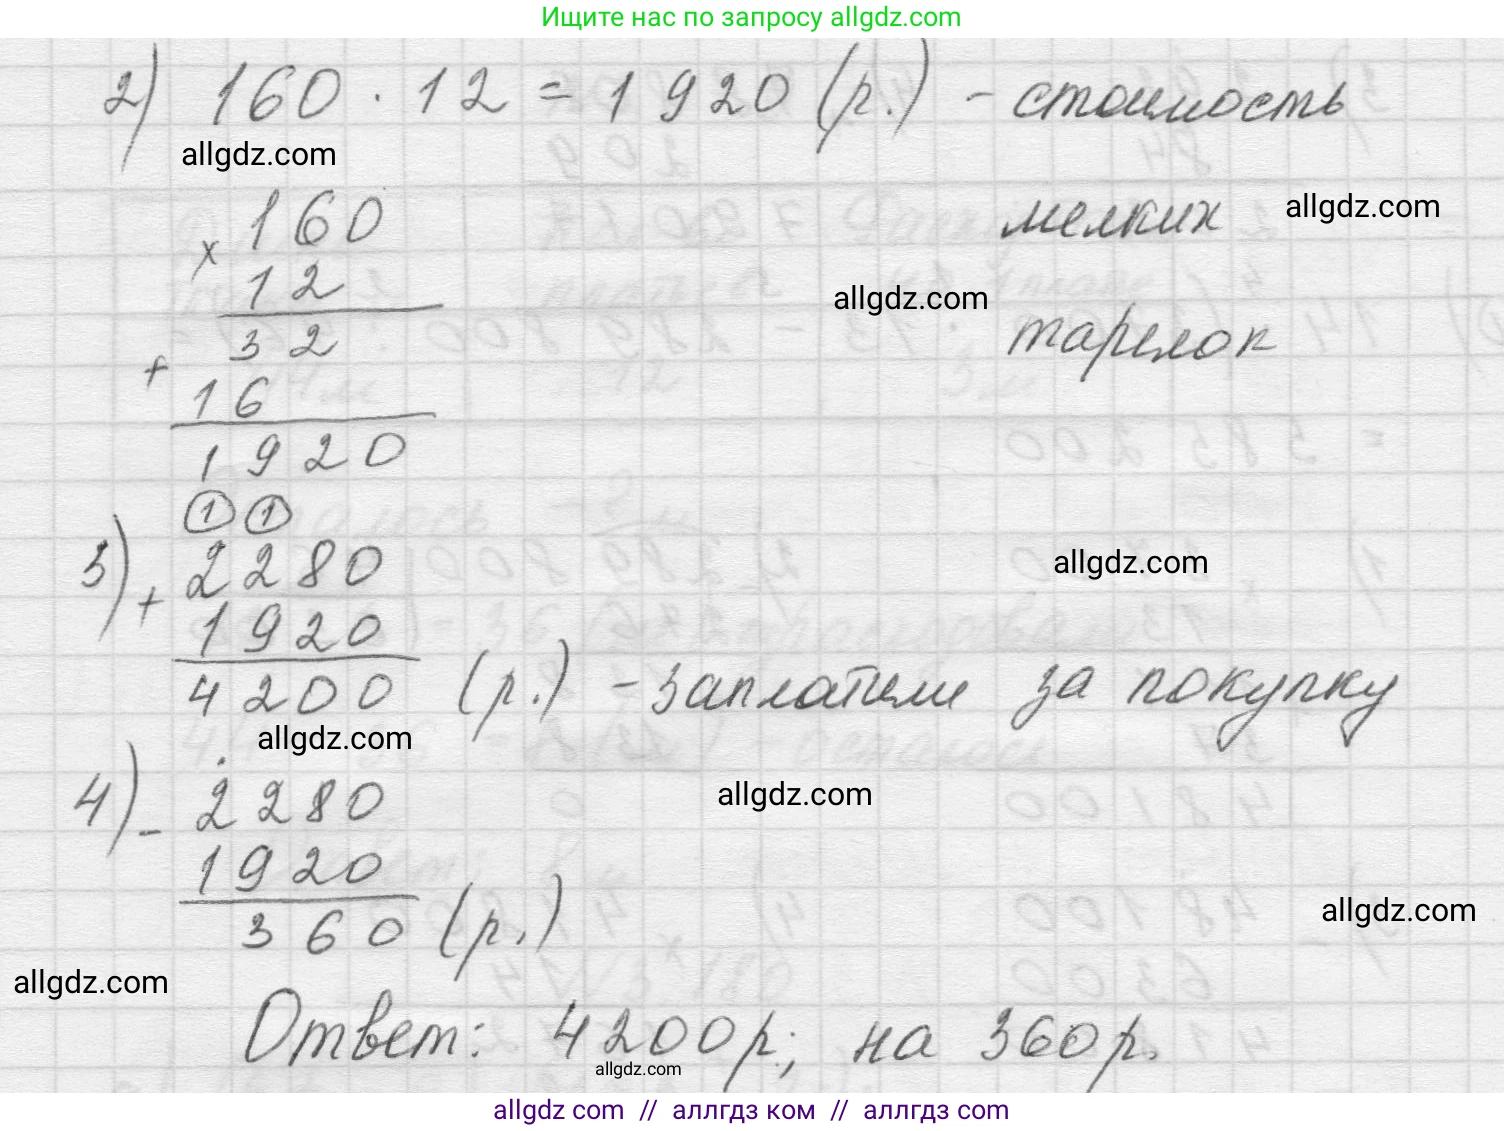 Ищите нас по запросу allgdz.com
2) 160 · 12 = 1920 (р.) - стоимость
allgdz.com
мелких allgdz.com
× 160
12
allgdz.com
тарелок
32
+ 16
1920
1 1
3) + 2280
allgdz.com
1920
4200 (р.) - заплатили за покупку
allgdz.com
4) - 2280
allgdz.com
1920
360 (р.)
allgdz.com
allgdz.com
Ответ: 4200р; на 360р.
allgdz.com
allgdz com // аллгдз ком // аллгдз com